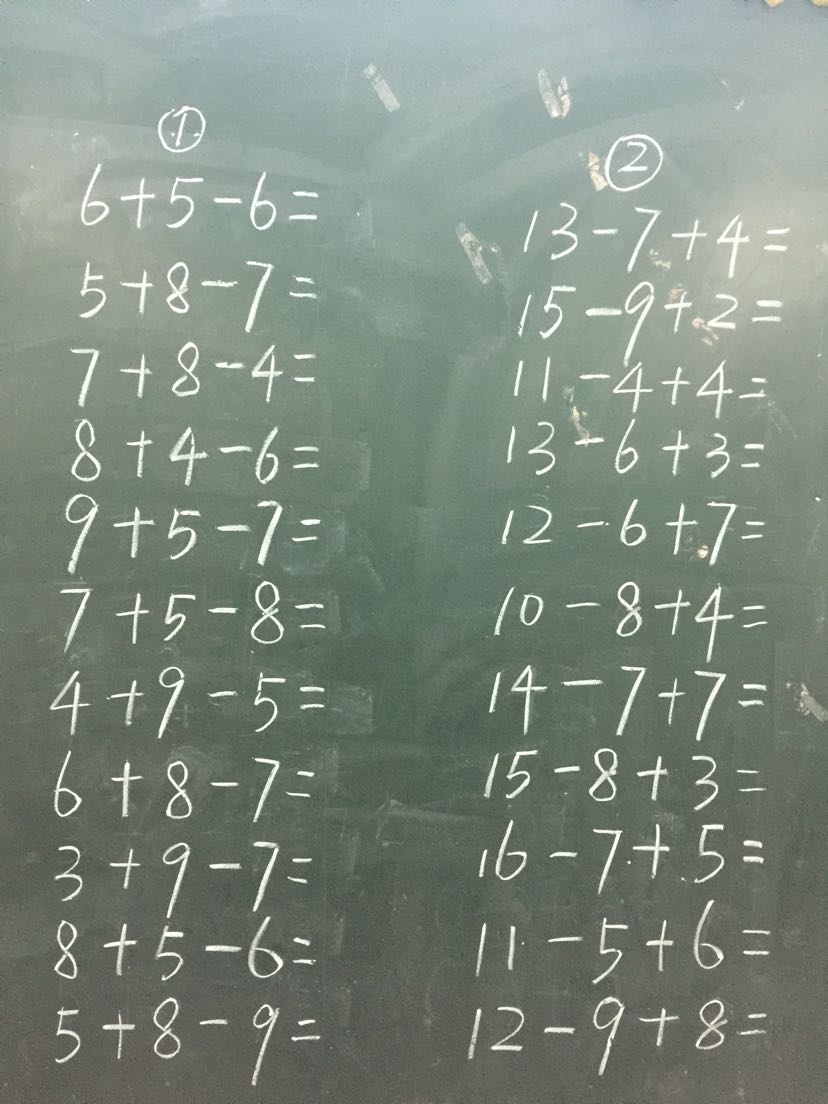 ①
6+5-6=
5+8-7=
7+8-4=
8+4-6=
9+5-7=
7+5-8=
4+9-5=
6+8-7=
3+9-7=
8+5-6=
5+8-9=
②
13-7+4=
15-9+2=
11-4+4=
13-6+3=
12-6+7=
10-8+4=
14-7+7=
15-8+3=
16-7+5=
11-5+6=
12-9+8=